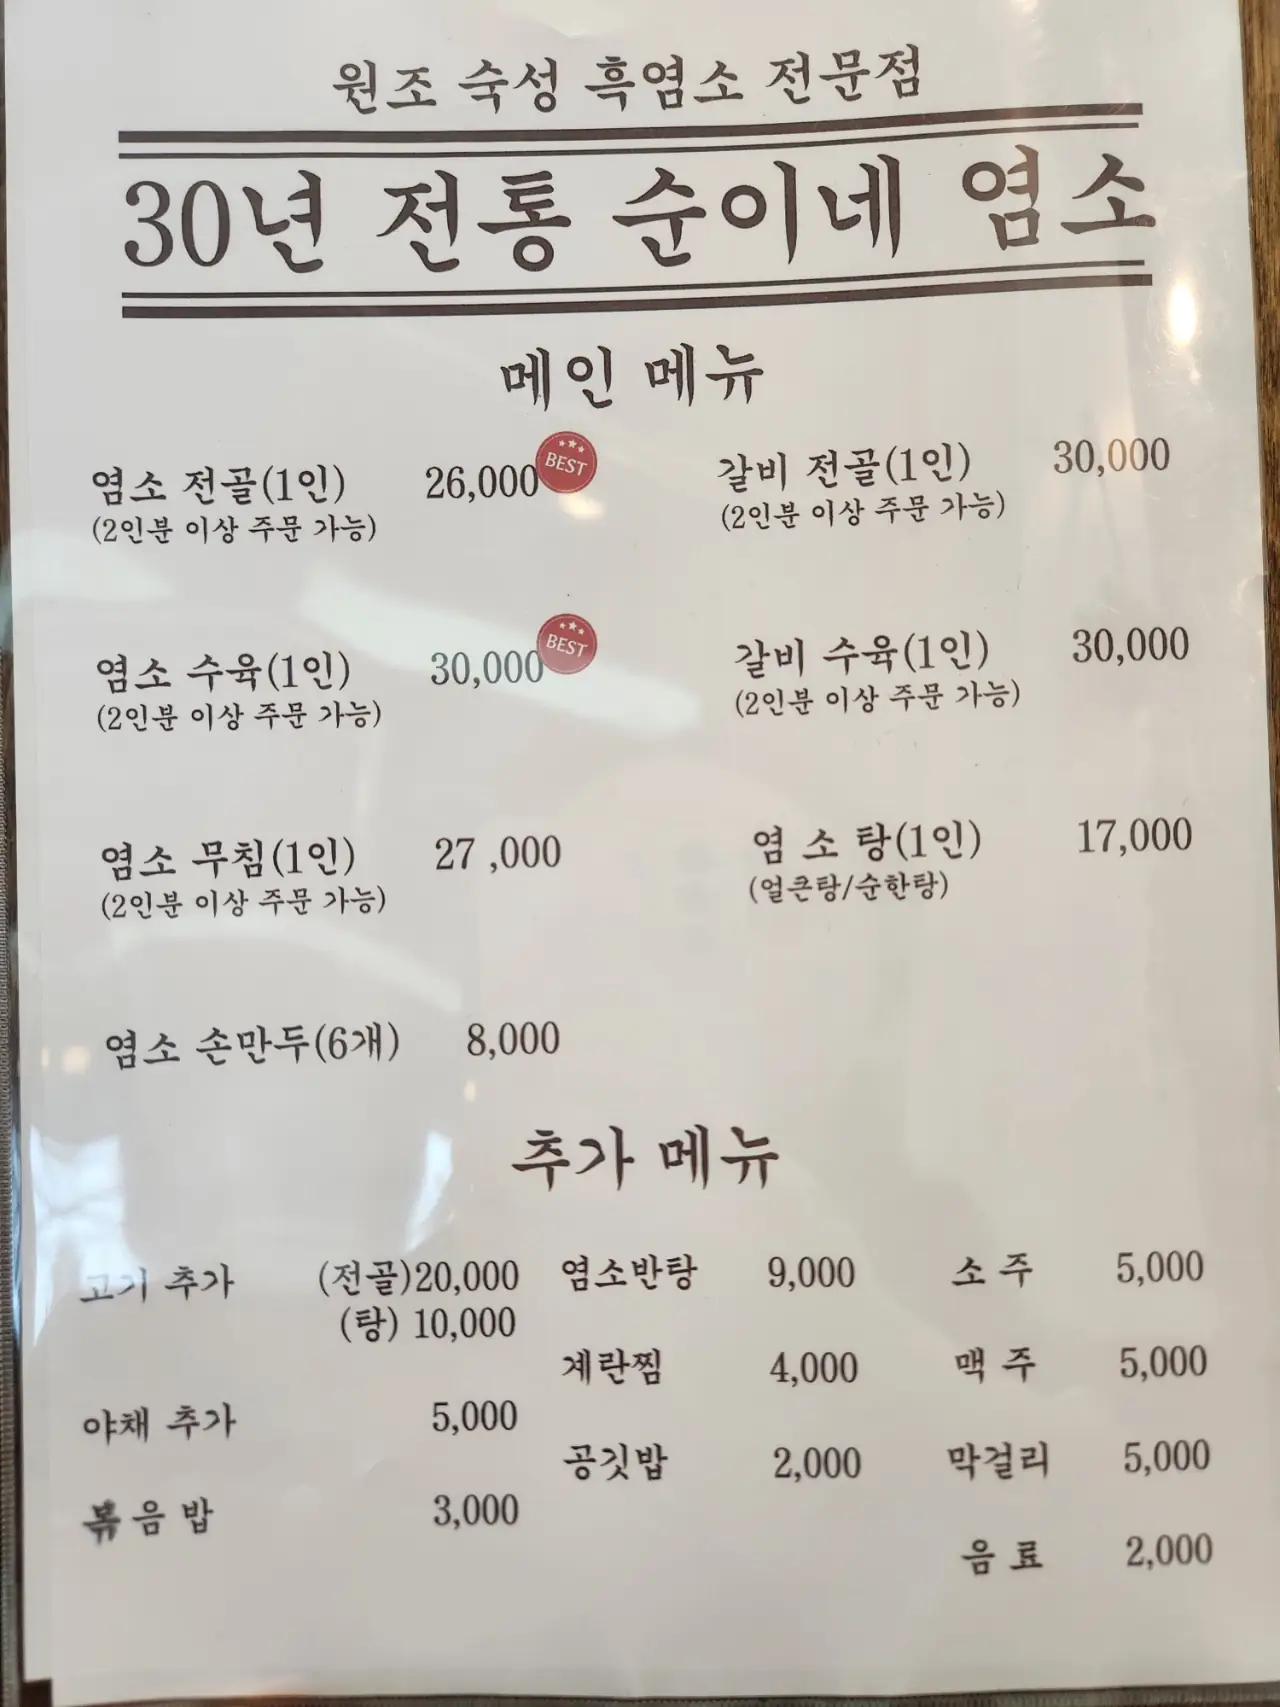 원조 숙성 흑염소 전문점
30년 전통 순이네 염소
메인 메뉴
염소 전골(1인) 26,000 BEST
(2인분 이상 주문 가능)
갈비 전골(1인) 30,000
(2인분 이상 주문 가능)
염소 수육(1인) 30,000 BEST
(2인분 이상 주문 가능)
갈비 수육(1인) 30,000
(2인분 이상 주문 가능)
염소 무침(1인) 27 ,000
(2인분 이상 주문 가능)
염 소 탕(1인) 17,000
(얼큰탕/순한탕)
염소 손만두(6개) 8,000
추가 메뉴
고기 추가 (전골)20,000
(탕) 10,000
야채 추가 5,000
볶음밥 3,000
염소반탕 9,000
계란찜 4,000
공깃밥 2,000
소 주 5,000
맥 주 5,000
막걸리 5,000
음 료 2,000